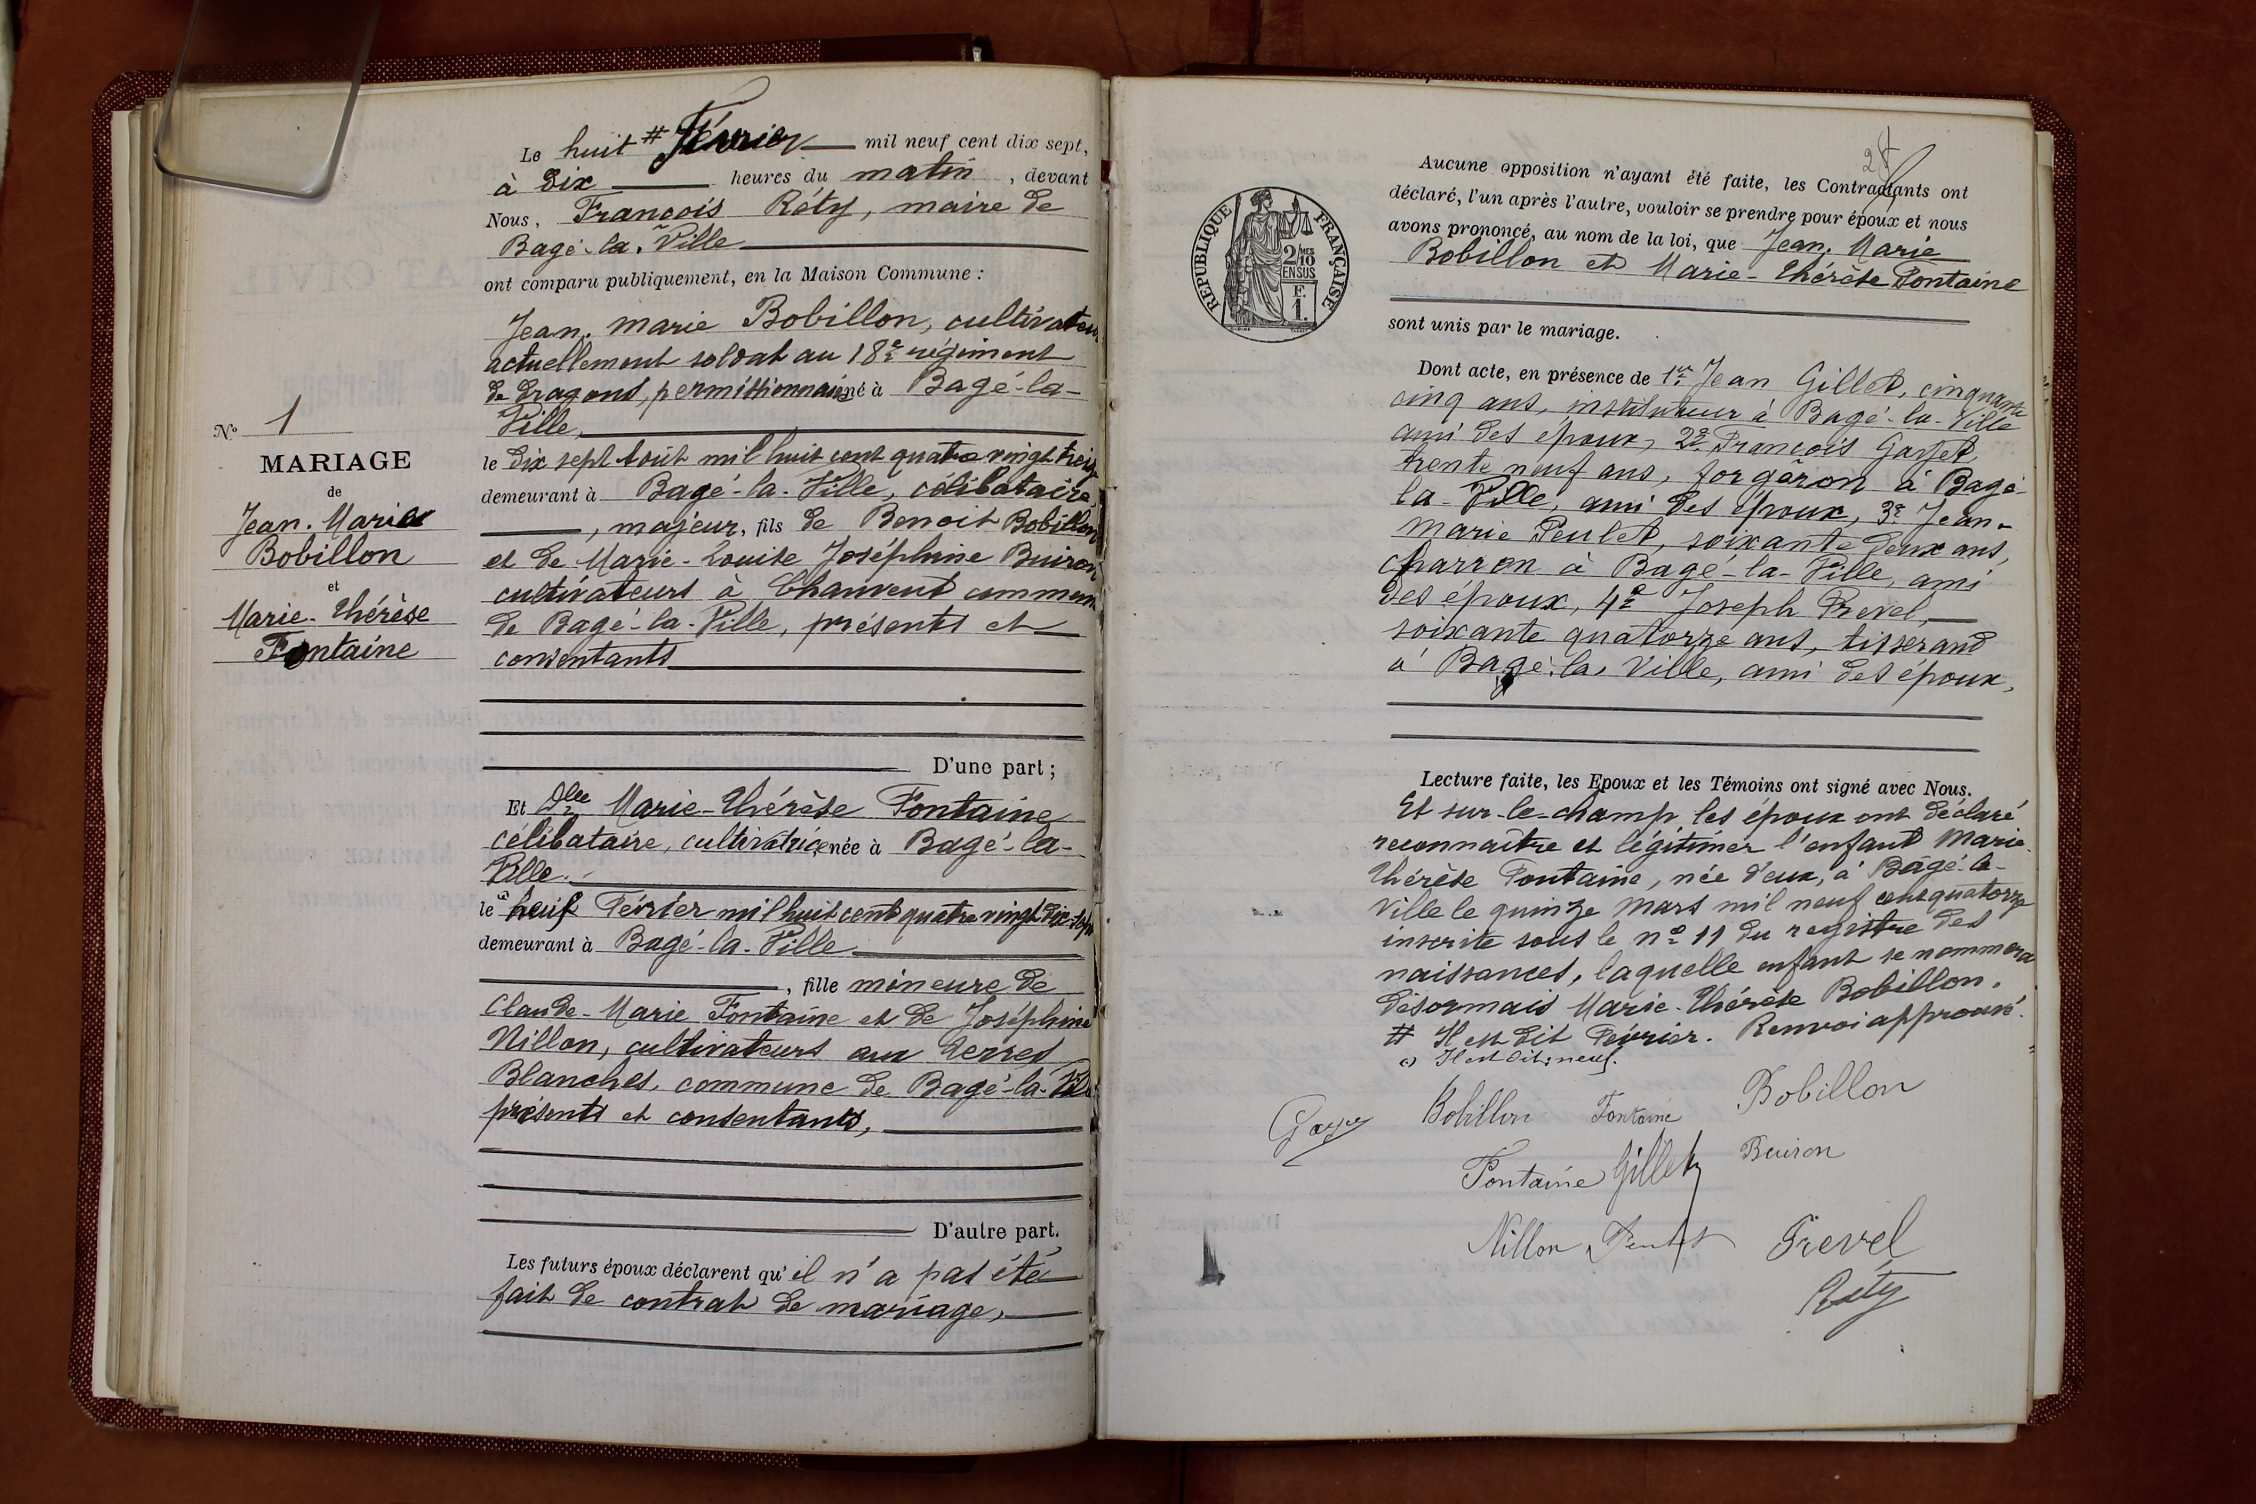 Le huit # Février mil neuf cent dix sept,
à dix heures du matin, devant
Nous, François Réty, maire de
Bagé-la-Ville
ont comparu publiquement, en la Maison Commune :
Jean-Marie Bobillon, cultivateur
actuellement soldat au 18e régiment
de dragons, permissionnaire né à Bagé-la-
Ville,
le dix sept août mil huit cent quatre vingt treize
demeurant à Bagé-la-Ville, célibataire
, majeur, fils de Benoit Bobillon
et de Marie-Louise Joséphine Buiron
cultivateurs à Chauvent commune
de Bagé-la-Ville, présents et
consentants
D'une part ;
Et Dlle Marie-Thérèse Fontaine
célibataire, cultivatrice, née à Bagé-la-
Ville.
le neuf Février mil huit cent quatre vingt dix-sept
demeurant à Bagé-la-Ville
, fille mineure de
Claude-Marie Fontaine et de Joséphine
Nillon, cultivateurs aux Terres
Blanches, commune de Bagé-la-Ville
présents et consentants,
D'autre part.
Les futurs époux déclarent qu'il n'a pas été
fait de contrat de mariage,
No 1
MARIAGE
de
Jean-Marie
Bobillon
et
Marie-Thérèse
Fontaine
28
RÉPUBLIQUE FRANÇAISE
2/10
EN SUS
F.
1.
Aucune opposition n'ayant été faite, les Contractants ont
déclaré, l'un après l'autre, vouloir se prendre pour époux et nous
avons prononcé, au nom de la loi, que Jean-Marie
Bobillon et Marie-Thérèse Fontaine
sont unis par le mariage.
Dont acte, en présence de 1er Jean Gillet, cinquante
cinq ans, instituteur à Bagé-la-Ville
ami des époux, 2e François Gasset,
trente neuf ans, forgeron à Bagé-
la-Ville, ami des époux, 3e Jean-
Marie Peulet, soixante deux ans,
charron à Bagé-la-Ville, ami
des époux, 4e Joseph Prevel,
soixante quatorze ans, tisserand
à Bagé-la-Ville, ami des époux,
Lecture faite, les Epoux et les Témoins ont signé avec Nous.
Et sur-le-champ les époux ont déclaré
reconnaître et légitimer l'enfant Marie-
Thérèse Fontaine, née d'eux, à Bagé-la-
Ville le quinze Mars mil neuf cent quatorze
inscrite sous le no 11 du registre des
naissances, laquelle enfant se nommera
désormais Marie-Thérèse Bobillon.
# Il est dit Février. Renvoi approuvé.
Il est dit : neuf.
Bobillon Fontaine Bobillon
Fontaine Gillet Buiron
Nillon Peulet Prevel
Réty